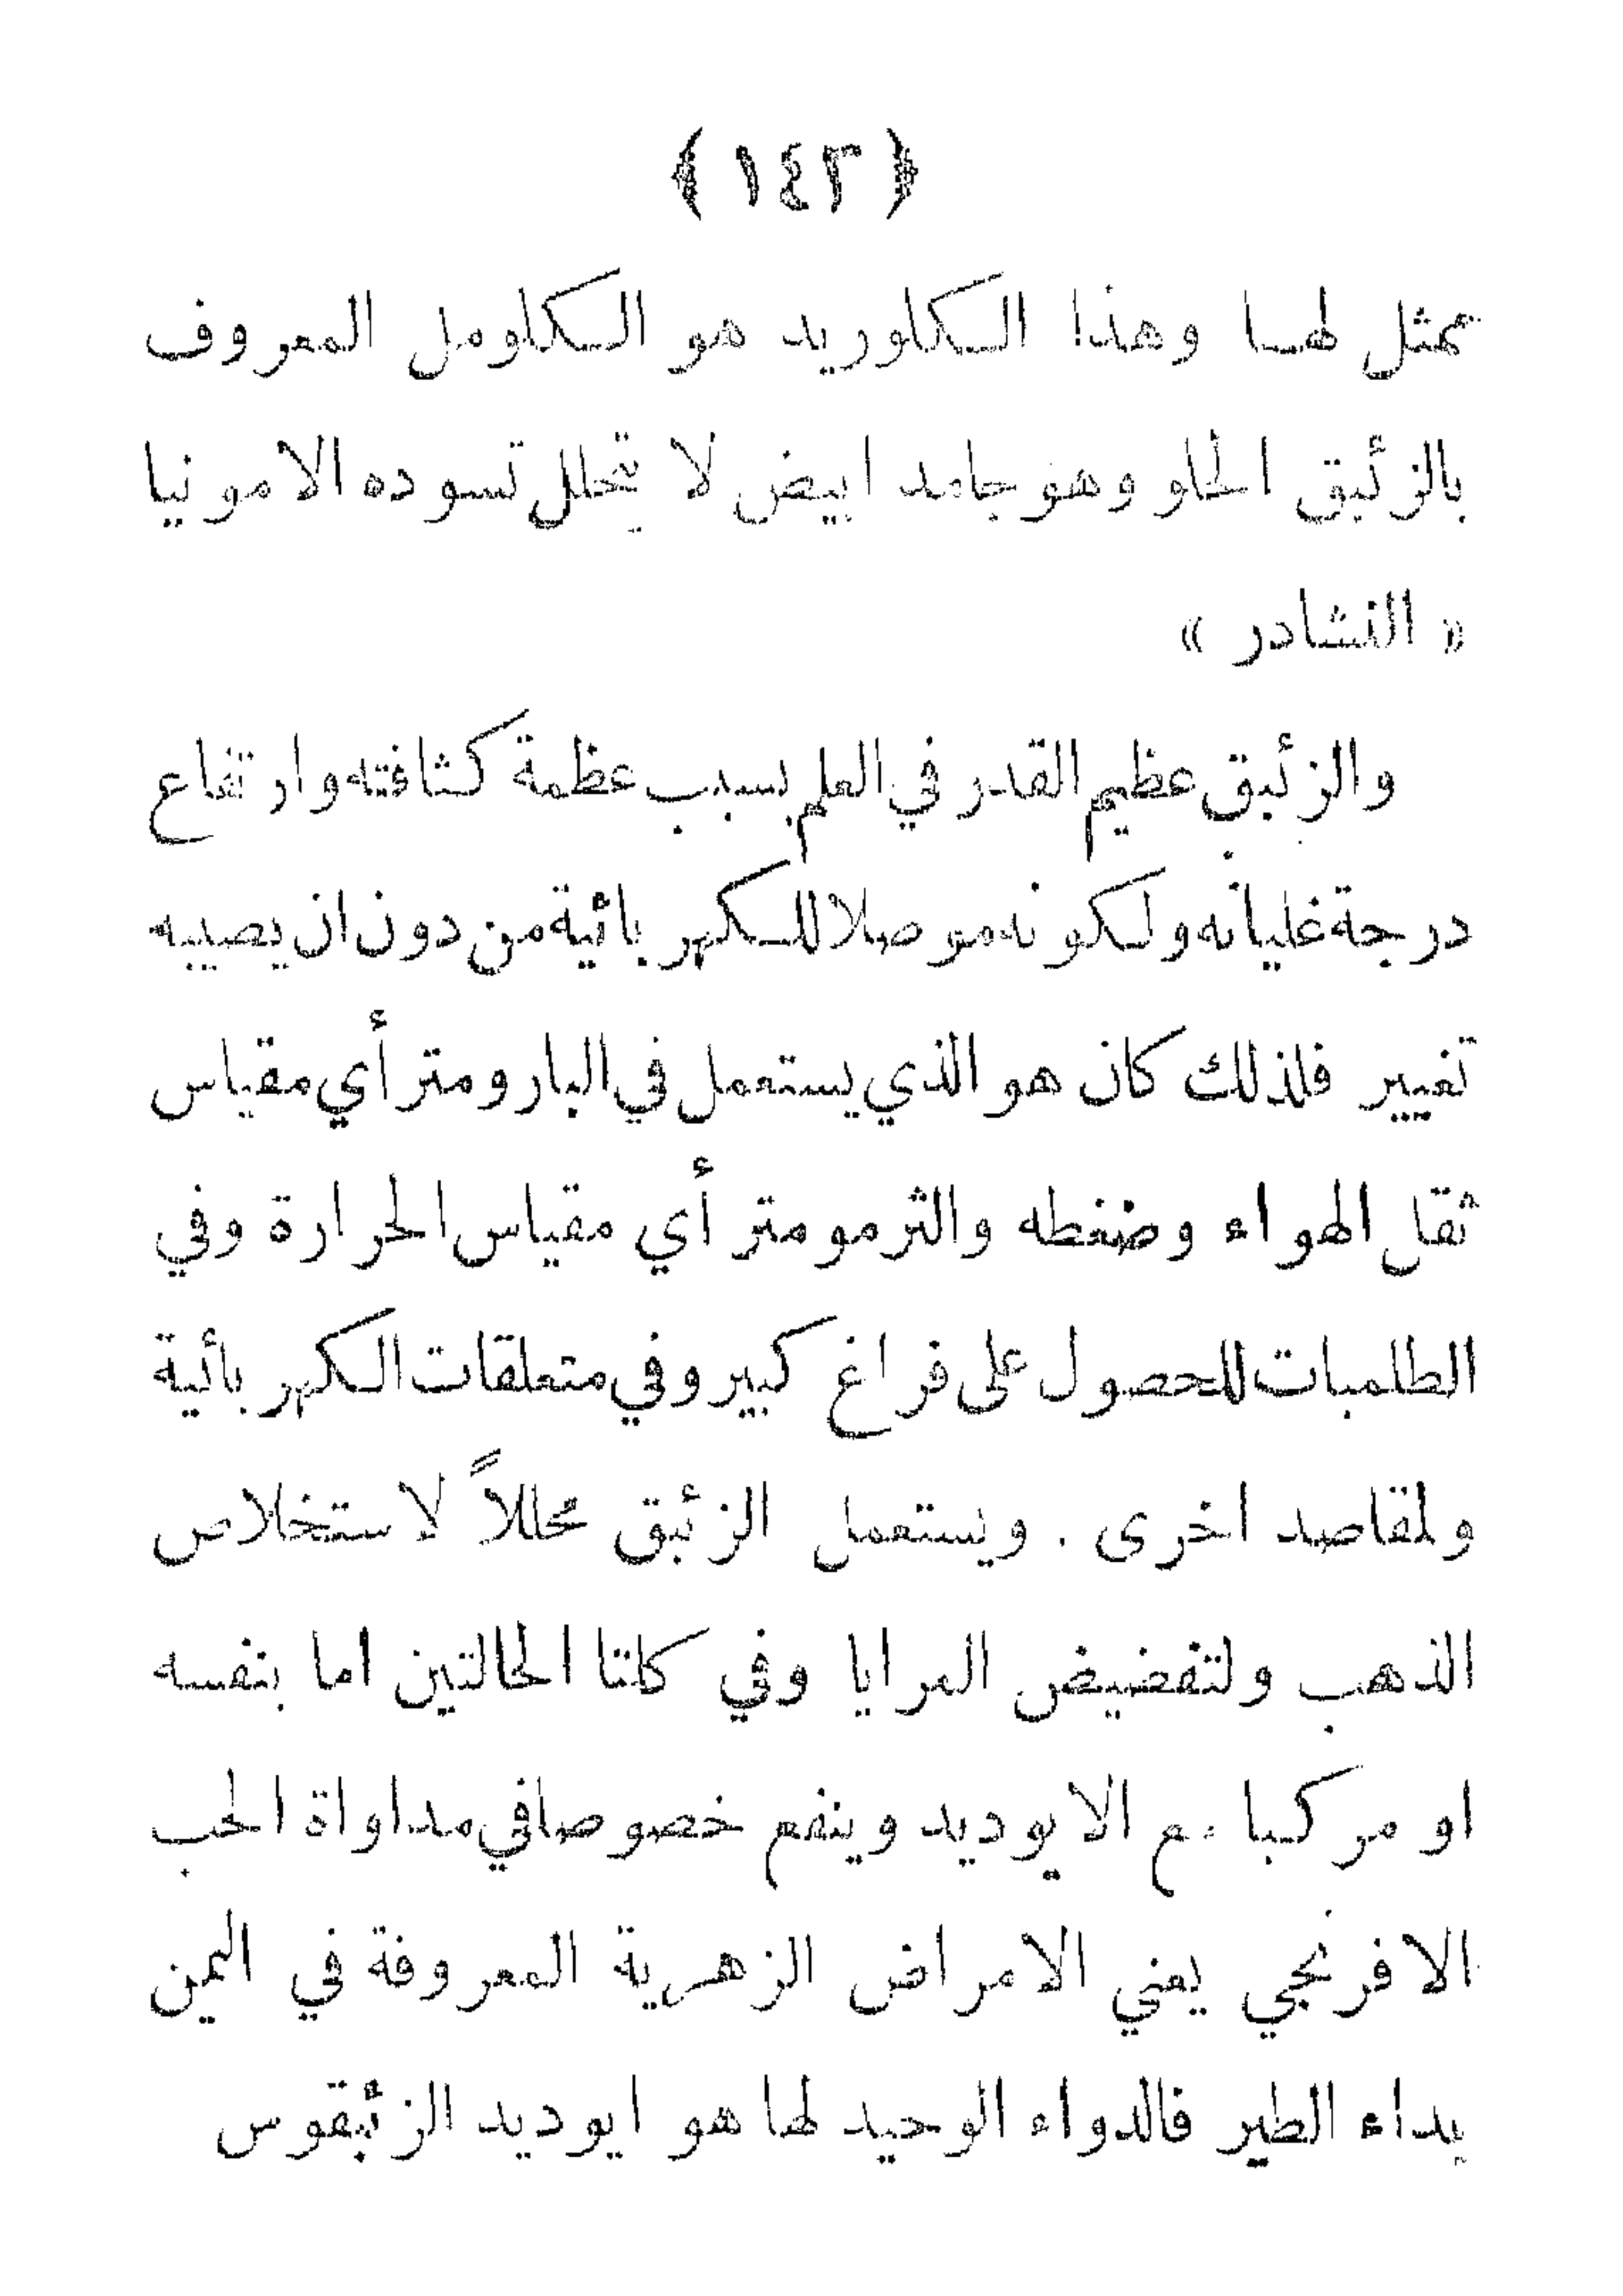 ﴿ ١٤٣ ﴾
ممثل لهـا وهذا الـكلوريد هو الـكلومل المعروف
بالزئبق الحلو وهو جامد ابيض لا يتحلل تسوده الامونيا
« النشادر »
والزئبق عظيم القدر في العلم بسبب عظمة كثافته وارتفاع
درجة غليانه ولكونه موصلا للـكهربائية من دون ان يصيبه
تغيير فلذلك كان هو الذي يستعمل في البارومتر أي مقياس
ثقل الهواء وضغطه والثرمومتر أي مقياس الحرارة وفي
الطلمبات للحصول على فراغ كبير وفي متعلقات الـكهربائية
ولمقاصد اخرى . ويستعمل الزئبق محللاً لاستخلاص
الذهب ولتفضيض المرايا وفي كلتا الحالتين اما بنفسه
او مركبا مع الايوديد وينفع خصوصا في مداواة الحب
الافرنجي يعني الامراض الزهرية المعروفة في اليمن
بداء الطير فالدواء الوحيد لها هو ايوديد الزئبقوس